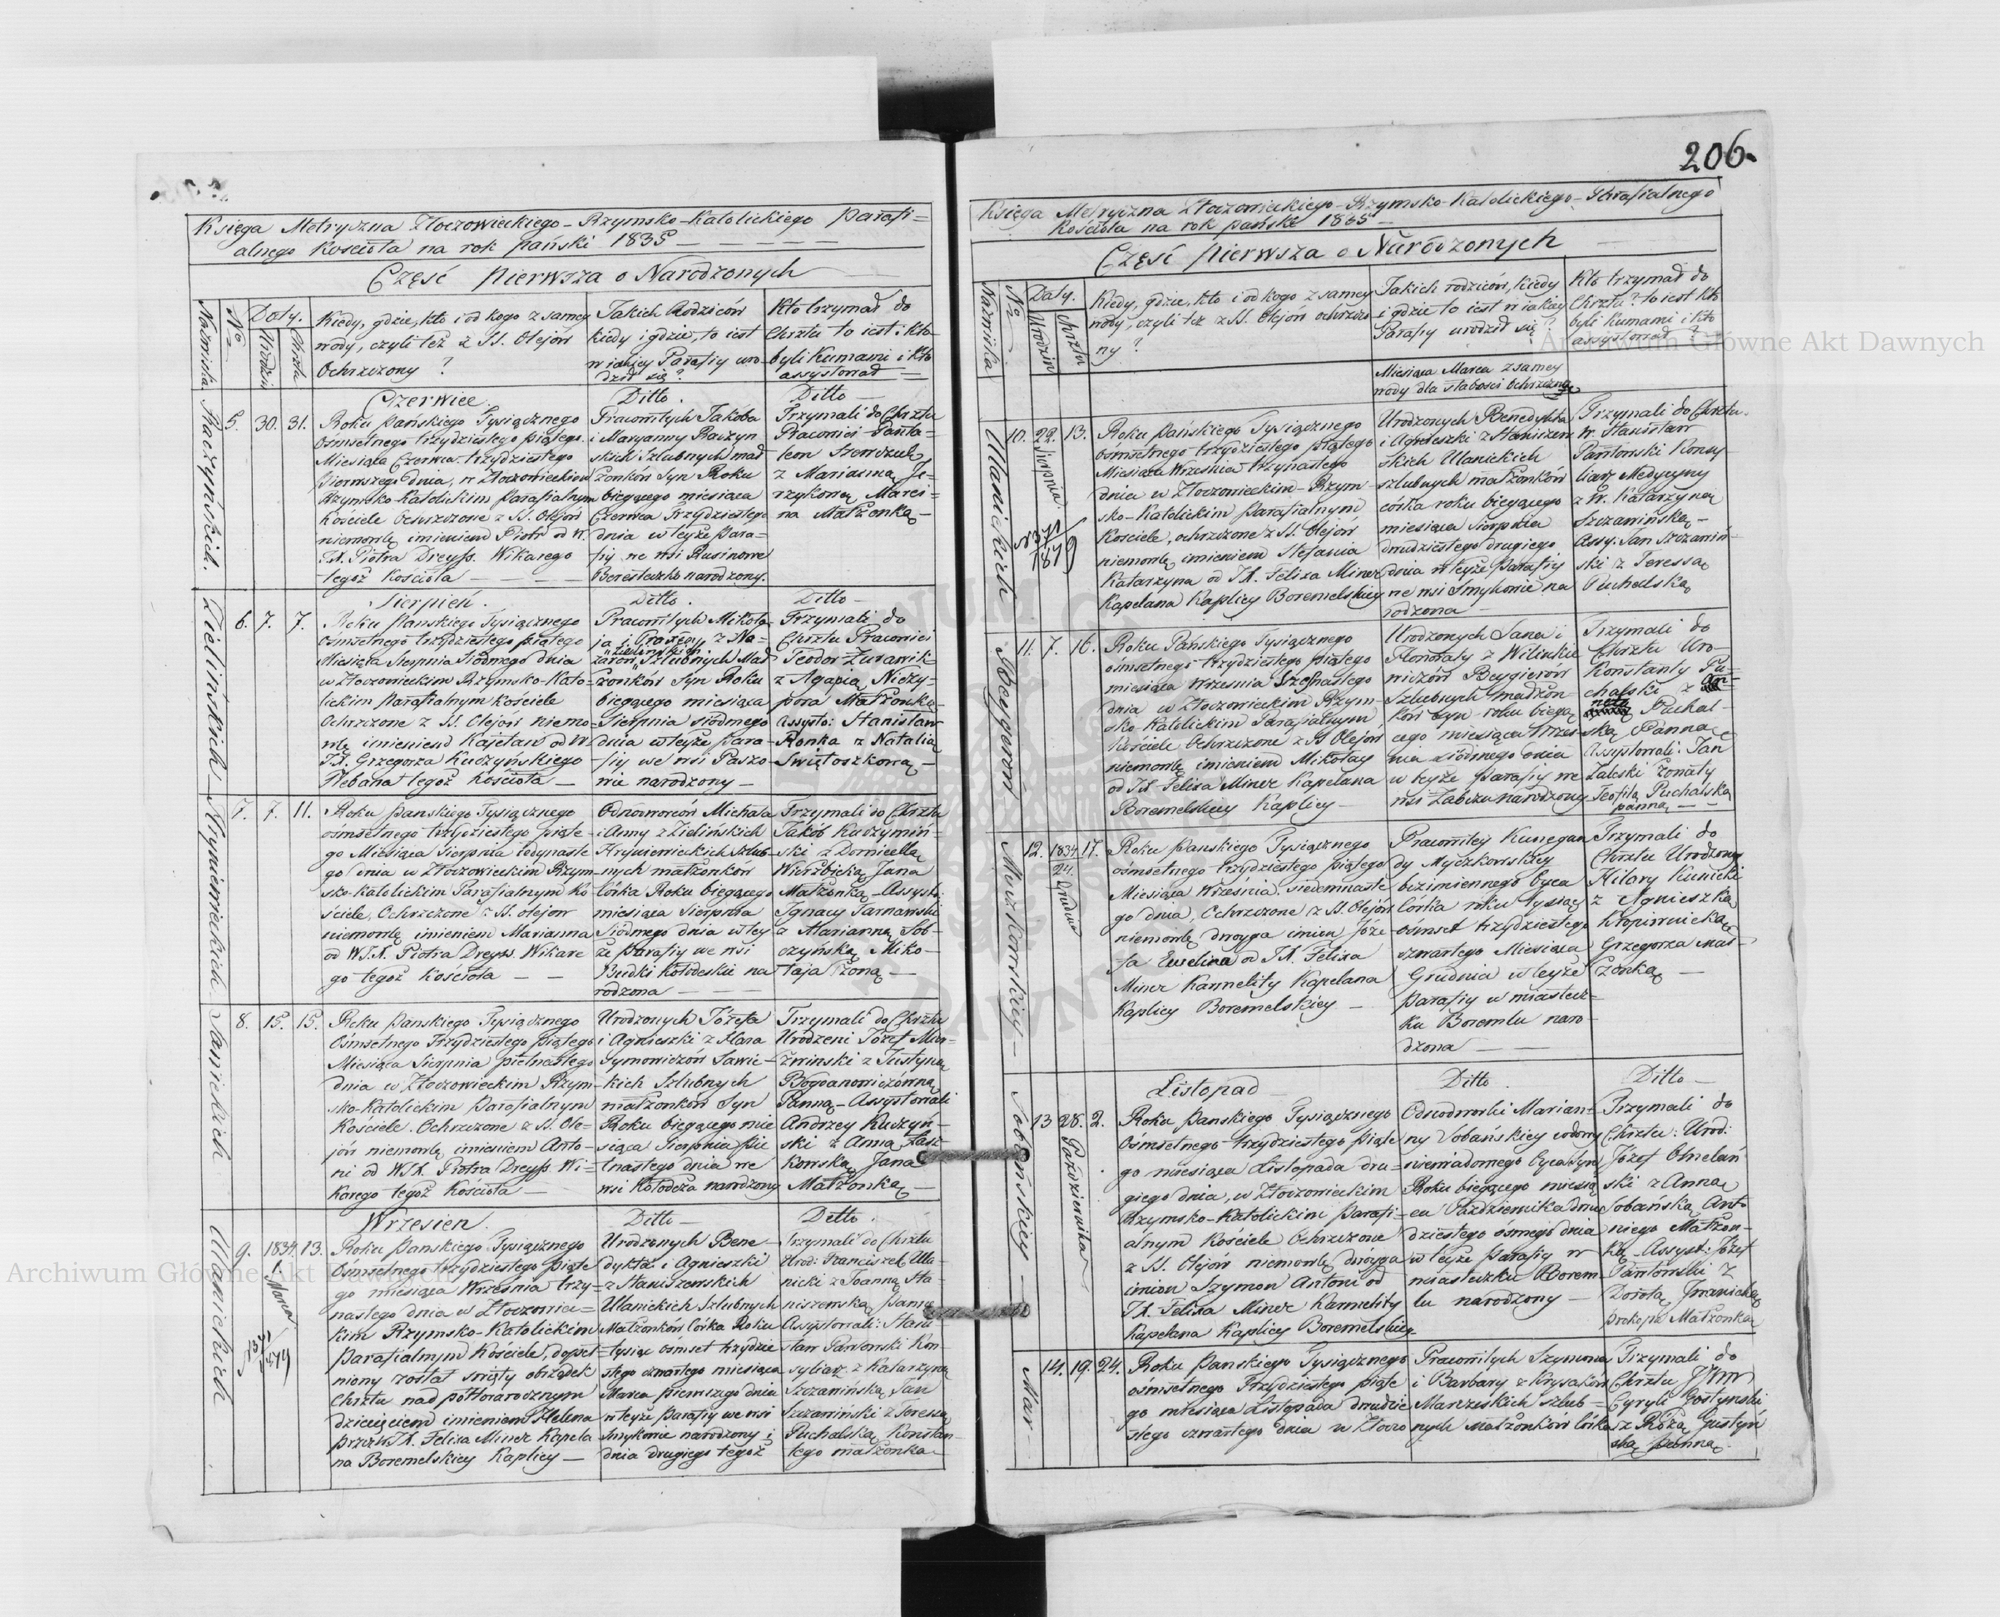 206.
Księga Metryczna Złoczowieckiego-Rzymsko-Katolickiego Parafi=
alnego Kościoła na rok pański 1835
Część Pierwsza o Narodzonych
Nazwiska
No
Daty.
Urodzin
Chrztu
Kiedy, gdzie, kto i od kogo z samey
wody, czyli też z SS. Olejów
Ochrzczony ?
Jakich Rodziców
kiedy i gdzie, to iest
w iakiey Parafiy uro-
dził się ?
Kto trzymał do
Chrztu to iest: kto
byli Kumami i kto
assystował
Raczyńskich.
5. 30. 31.
Czerwiec.
Roku Pańskiego Tysiącznego
Ośmsetnego trzydziestego piątego
Miesiąca Czerwca trzydziestego
Pierwszego dnia, w Złoczowieckim
Rzymsko Katolickim parafialnym
Kościele Ochrzczone z SS. Olejów
niemowlę imieniem Piotr od W.
JX. Piotra Dreyss. Wikarego
tegoż Kościoła
Ditto.
Pracowitych Jakóba
i Maryanny Raczyn
skich Szlubnych mał
żonków Syn Roku
bieżącego miesiąca
Czerwca Trzydziestego
dnia w teyże Para=
fiy we wsi Rusinowe
Beresteczko narodzony.
Ditto
Trzymali do Chrztu
Pracowici Panta=
leon Szewczuk
z Marianną Je=
rzykową Marci=
na Małżonką
Zielińskich
6. 7. 7.
Sierpień.
Roku Pańskiego Tysiącznego
Ośmsetnego trzydziestego piątego
Miesiąca Sierpnia Siódmego dnia
w Złoczowieckim Rzymsko-Kato=
lickim Parafialnym Kościele
Ochrzczone z SS. Olejów niemo=
wlę imieniem Kajetan od W
JX. Grzegorza Kuczyńskiego
Plebana tegoż Kościoła
Ditto.
Pracowitych Mikoła
ja i z Na=
zarów Zielińskich Szlubnych Mał
żonków Syn Roku
bieżącego miesiąca
Sierpnia siódmego
dnia w teyże Para=
fiy we wsi Paszo
wie narodzony
Ditto
Trzymali do
Chrztu Pracowici
Teodor Żurawik
z Agapią Nieży=
pora Małżonką
Assysto: Stanisław
Ronka z Natalią
Świętoszkową
Hryniewieckich
7. 7. 11.
Roku Pańskiego Tysiącznego
ośmsetnego trzydziestego piąte
go Miesiąca Sierpnia iedynaste
go dnia w Złoczowieckim Rzym=
sko-Katolickim Parafialnym Ko
ściele, Ochrzczone z SS. olejow
niemowlę imieniem Marianna
od W.JX. Piotra Dreyss. Wikare
go tegoż kościoła
Odnodworców Michała
i Anny z Zielińskich
Hryniewieckich Szlub=
nych małżonków
Córka Roku bieżącego
miesiąca Sierpnia
Siódmego dnia w tey
że parafiy we wsi
Budki Kołodeskie na
rodzona
Trzymali do Chrztu
Jakób Kuczymiń=
ski z Domicellą
Wierzbicką Jana
Małżonką - Assyst:
Ignacy Tarnawski
a Marianną Sob=
czyńską Miko=
łaja Żoną
Sawickich
8. 15. 15.
Roku Pańskiego Tysiącznego
Ośmsetnego Trzydziestego piątego
Miesiąca Sierpnia piętnastego
dnia w Złoczowieckim Rzym=
sko-Katolickim Parafialnym
Kościele. Ochrzczone z SS. Ole=
jów niemowlę imieniem Anto=
ni od W.JX. Piotra Dreyss. Wi=
karego tegoż Kościoła
Urodzonych Józefa
i Agnieszki z Hara
Symowiczów Sawic=
kich Szlubnych
małżonków Syn
Roku bieżącego mie
siąca Sierpnia pię
tnastego dnia we
wsi Kołodeża narodzony
Trzymali do Chrztu
Urodzeni Józef Mur=
źwinski z Justyną
Bogdanowiczówną
Panną - Assystowali
Andrzey Kuczyń=
ski z Anną Łasz
kowską Jana
Małżonką
Ulanickich
9. 1834. 13.
1. Marca
Wrzesien.
Roku Pańskiego Tysiącznego
Ośmsetnego trzydziestego piąte
go miesiąca Września trzy=
nastego dnia w Złoczowiec=
kim Rzymsko-Katolickim
Parafialnym Kościele, dopeł=
niony został święty obrządek
Chrztu nad półtorarocznym
dziecięciem imieniem Helena
przez W.JX. Felixa Miner Kapela
na Boremelskiey Kaplicy
Ditto
Urodzonych Bene=
dykta i Agnieszki
z Staniszewskich
Ulanickich Szlubnych
Małżonków Córka Roku
tysiąc ośmset trzydzie
stego czwartego miesiąca
Marca pierwszego dnia
w teyże parafiy we wsi
Smykowie narodzony i
dnia drugiego tegoż
Ditto.
Trzymali do Chrztu
Urod: Franciszek Ula=
nicki z Joanną Sta=
niszewską panną
Assystowali: Stani=
sław Pawłowski Kon
syliarz z Katarzyną
Szczawińską, Jan
Szczawiński z Teressą
Puchalską Konstan=
tego małżonką
Księga Metryczna Złoczowieckiego-Rzymsko-Katolickiego-Parafialnego
Kościoła na rok pański 1835
Część Pierwsza o Narodzonych
Nazwiska
No
Daty.
Urodzin
Chrztu
Kiedy, gdzie, kto i od kogo z samey
wody, czyli też z SS. Olejów ochrzczo
ny ?
Jakich rodziców, kiedy
i gdzie to iest w iakiey
Parafiy urodził się ?
Kto trzymał do
Chrztu? to iest kto
byli Kumami i kto
assystował ?
Miesiąca Marca z samey
wody dla słabości Ochrzczona
Ulanickich
10. 22. Sierpnia 13.
Roku Pańskiego Tysiącznego
ośmsetnego trzydziestego piątego
Miesiąca Września trzynastego
dnia w Złoczowieckim-Rzym
sko-Katolickim parafialnym
Kościele, ochrzczone z SS. Olejów
niemowlę imieniem Stefania
Katarzyna od JX. Felixa Miner
Kapelana Kaplicy Boremelskiey
Urodzonych Benedykta
i Agnieszki z Staniszew
skich Ulanickich
szlubnych małżonków
córka roku bieżącego
miesiąca Sierpnia
drudziestego drugiego
dnia w teyże parafiy
we wsi Smykowie na
rodzona
Trzymali do Chrztu
W. Stanisław
Pawłowski Konsy
liarz Medycyny
z W. Katarzyną
Szczawińską
Assy. Jan Szczawiń=
ski z Teressą
Puchalską
Beygerów
11. 7. 16.
Roku Pańskiego Tysiącznego
ośmsetnego trzydziestego piątego
miesiąca Września Szesnastego
dnia w Złoczowieckim Rzym=
sko-Katolickim Parafialnym
Kościele Ochrzczone z SS Olejów
niemowlę imieniem Mikołay
od JX. Felixa Miner Kapelana
Boremelskiey Kaplicy
Urodzonych Jana i
Honoraty z Witinkie
wiczów Beygierów
Szlubnych małżon=
ków Syn roku bieżą
cego miesiąca Wrzes=
nia siódmego dnia
w teyże parafiy we
wsi Zabczu narodzony
Trzymali do
Chrztu Uro=
Konstanty Pu=
chalski z An=
netą Puchal=
ską Panną
Assystowali: Jan
Zaleski żonaty
Teofila Puchalska
panną
Muszkowskiey
12. 1834 24. Grudnia 17.
Roku Pańskiego Tysiącznego
ośmsetnego trzydziestego piątego
Miesiąca Września siedemnaste
go dnia, Ochrzczone z SS. Olejów
niemowlę dwoyga imion Józe
fa Ewelina od JX. Felixa
Miner Karmelity Kapelana
Kaplicy Boremelskiey
Pracowitey Kunegun
dy Myczkowskiey
bezimiennego Oyca
Córka roku tysiąc
ośmset trzydziestego
czwartego Miesiąca
Grudnia w teyże
parafiy w miastecz=
ku Boremlu naro=
dzona
Trzymali do
Chrztu Urodzony
Hilary Kunicki
z Agnieszką
Kropiwnicką
Grzegorza mał=
żonką
Sobańskiey
13 28. Października 2.
Listopad
Roku Pańskiego Tysiącznego
Ośmsetnego trzydziestego piąte
go miesiąca Listopada dru=
giego dnia, w Złoczowieckim
Rzymsko-Katolickim Parafi=
alnym Kościele Ochrzczone
z SS. Olejów niemowlę dwoyga
imion Szymon Antoni od
JX. Felixa Miner Karmelity
Kapelana Kaplicy Boremelskiey
Ditto.
Odnodworki Marian=
ny Sobańskiey wdowy
niewiadomego Oyca Syn
Roku bieżącego miesią
ca Października dwu
dziestego ósmego dnia
w teyże parafiy w
miasteczku Borem=
lu narodzony
Ditto
Trzymali do
Chrztu: Urod:
Józef Omelań
ski z Anną
Sobańską Anto
niego Małżon=
ką - Assyst: Józef
Pawłowski z
Dorotą Iwanicką
Prokopa Małżonką
Mar
14. 19. 24.
Roku Pańskiego Tysiącznego
ośmsetnego Trzydziestego piąte
go miesiąca Listopada drudzie
stego czwartego dnia w Złoczo
Pracowitych Szymona
i Barbary z Krysaków
Marczeskich szlub=
nych małżonków Córka
Trzymali do
Chrztu JWW
Cyryli Gostynski
z Różą Gustyń
ską panną.
Archiwum Główne Akt Dawnych
Archiwum Główne Akt Dawnych